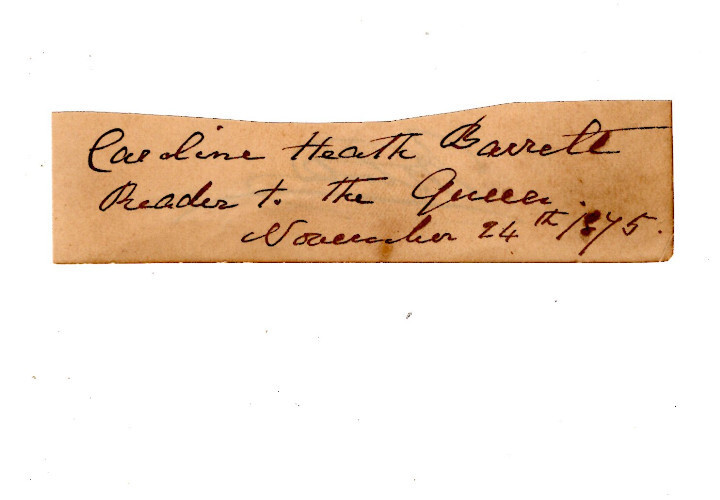 Caroline Heath Barrett
Reader to the Queen.
November 24th 1875.